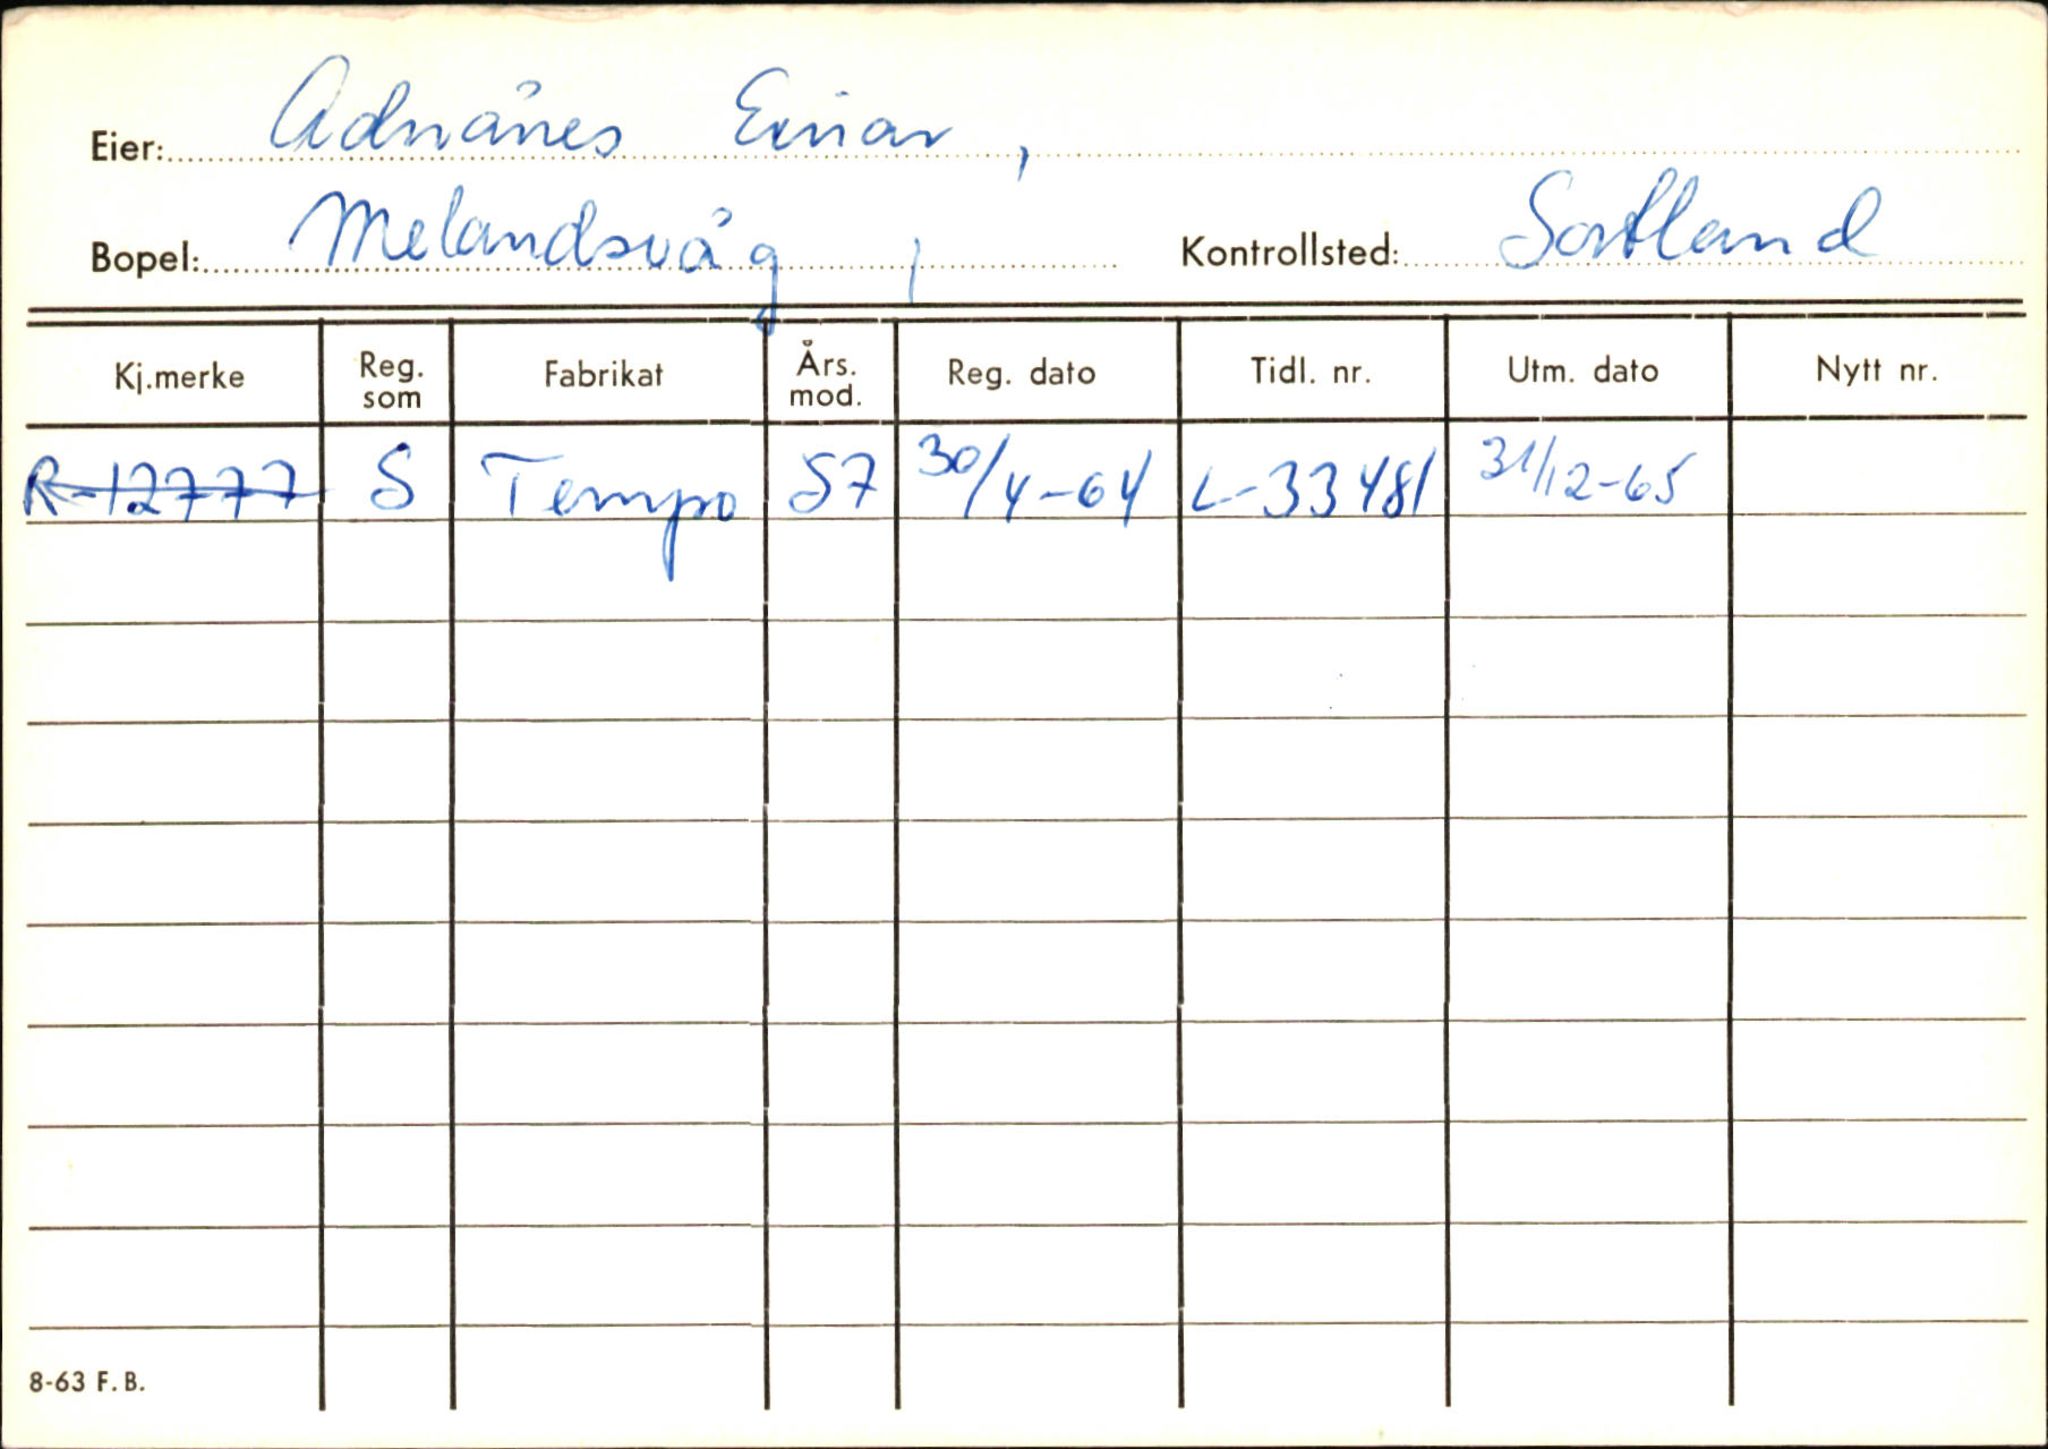 Eier: Adnånes Einar,
Bopel: Melandsvåg, Kontrollsted: Sortland
Kj.merke Reg. som Fabrikat Års. mod. Reg. dato Tidl. nr. Utm. dato Nytt nr.
R-12777 S Tempo 57 30/4-64 L-33481 31/12-65
8-63 F.B.